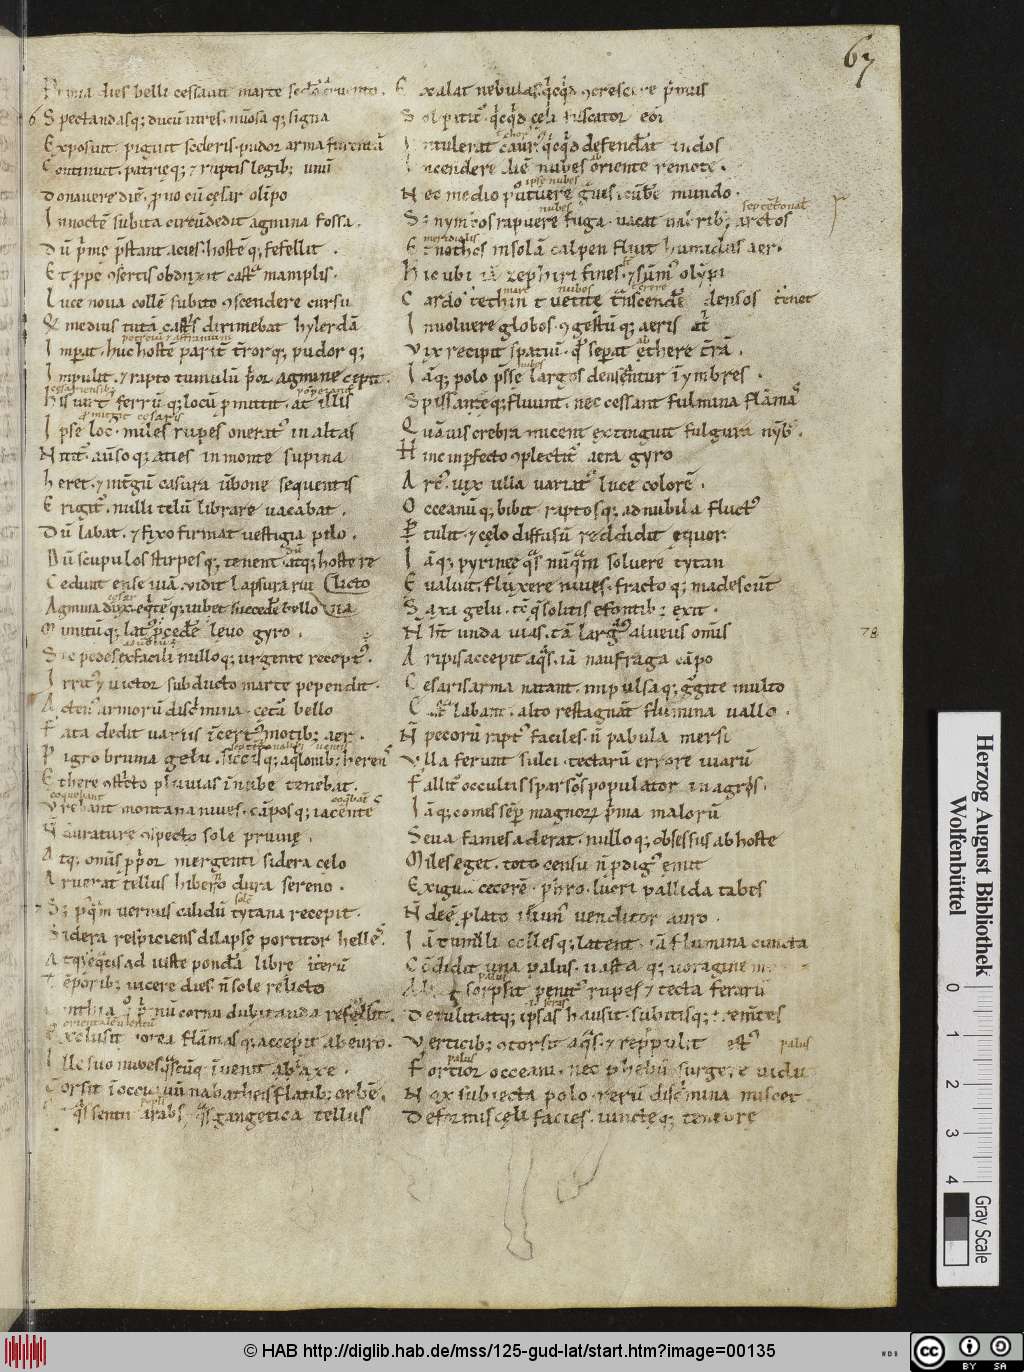 67
Prima dies belli cessauit marte cruento.
Spectandasq; ducū uires. nūosa q; signa
Exposuit piguit sceleris. pudor arma furentū
Continuit. patrięq; & ruptis legib; unū
Donauere diē. p̄no cū cesar olīpo
In noctē subita circūdedit agmina fossa.
Dū p̄mę p̄stant acies. hostē q; fefellit.
Et ꝓpe ꝯsertis obduxit castͣ maniplis.
Luce noua collē subito ꝯscendere cursu
Q medius tutā castͬs dirimebat hylerdā
petreiū & affraniū
Imperat. huc hostē parit̄ t̄rorq; pudor q;
Impulit. & rapto tumulū p̄or agmine cepit.
cesariensib;
his uirt ferrū q; locū ꝓmittit. at illis
Ipse loc. miles rupes onerat in altas
Nitit. aduso q; acies in monte supina
heret. & int̄gū casura ūbone sequentis
Erigit. nulli telū librare uacabat.
Dū labat. & fixo firmat uestigia pilo.
Dū scupulos stirpesq; tenent. atq; hoste re
Cedunt ense uiā. uidit lapsura rui licto
cesar
Agmina dux. eq̄tē q; iubet succedē bello uia
Munitūq; lat p̄cedē leuo gyro.
Sic pedes ex facili nulloq; urgente recept.
Irrit & uictor subducto marte pependit.
Acten armorū discͥmina. cet̄ bello
Fata dedit uariis ī cert motib; aer.
Pigro bruma gelu. siccis q; aqlonib; herens
Ethere ꝯstͥcto pluuias ī nube tenebat.
coquebant
Vrebant montana niues. cāposq; iacente
N durature ꝯspecto sole pruinę.
Atq; omīs p̄p̄or mergenti sidera cęlo
Aruerat tellus hiberno dura sereno.
sole
S; p̄q̄m uernus calidū tytana recepit.
Sidera respiciens dilapse portitor helles.
Atq; eq̄tis ad iuste pondera libre it̄erū
Tēporib; uicere dies. n̄ sole relicto
Cinthia q p̄mū cornu dubitanda refulsit.
Exclusit borea flāmasq; accepit ab euro.
Ille suo nubes q̄scūq; ī uenit ab axe.
Torsit ī occiduū nabatheis flatib; orbē.
q̄s sentit arabs. q̄s gangetica tellus
Exalat nebulas. q̄cqͥd ꝯcrescere p̄mus
Sol patit. q̄cqd cęli fuscator eoi
Intulerat caurꝰ. q̄cqͥd defenderat indos
Incendere diē nubes oriente remote.
ipse nubes
Nec medio potuere gͣues ī cūbē mundo.
nubes
S; nymbos rapuere fuga. uacat imbrib; arctos
septētͥonal
meridialis
Et nothos in solā calpen fluit humidus aer.
Hic ubi iā zephiri fines. & sūmꝰ olȳpi
mare nubes
Cardo tethin tenet uetite tͣnscenderē densos
Inuoluere globos. ꝯgestū q; aeris atͬ
Vix recipit spatiū. qͥ sepat ethere t̄rā.
nubes
Iāq; polo p̄sse largos densentur ī ymbres.
Spissateq; fluunt. nec cessant fulmina flāmas
Quāuis crebra micent extinguit fulgura nȳbꝰ.
Hinc inp̄fecto ꝯplectit aera gyro
Arcꝰ. uix ulla uariatꝰ luce colorē.
Occeanū q; bibit raptosq; ad nubila fluctꝰ
Ptulit. & cęlo diffusū reddidit equor.
Iāq; pyrinee q̄s nūq̄m soluere tytan
Eualuit. fluxere niues. fracto q; madescūt
Saxa gelu. tc q̄ solitis e fontib; exit.
N ht unda uias. tā largas alueus omīs
A ripis accepit aq̄s. iā naufraga cāpo
78
Cesaris arma natant. impulsa q; gͥgite multo
Castͣ labant. alto restagnāt flumina uallo.
N pecorū raptꝰ faciles. n̄ pabula mersi
Vlla ferunt sulci. tectarū errore uiarū
Fallitꝰ occultis sparsos populator in agros.
Iāq; comes sēp magnorꝝ p̄ma malorū
Seua fames aderat. nulloq; obsessus ab hoste
Miles eget. toto censu n̄ p̄digꝰ emit
Exiguā cecerē. p̄hͦo. lucri pallida tabes
N deē p̄lato ieiunꝰ uenditor auro.
Iā tumuli collesq; latent. iā flumina cuncta
Cōdidit una palus. uasta q; uoragine
palus
sorpsit penitꝰ rupes & tecta ferarū
Detulit. atq; ipsas hausit. subitisq; fremētes
Verticib; ꝯtorsit aq̄s. & reppulit estꝰ
palus
palus
Fortior occeani. nec phebū surgere uidit
Nox subiecta polo. rerū discͥmina miscet
Deformis cęli facies. iunctęq; tenebre
Herzog August Bibliothek
Wolfenbüttel
0
1
2
3
4
Gray Scale
© HAB http://diglib.hab.de/mss/125-gud-lat/start.htm?image=00135
WDB
cc BY SA